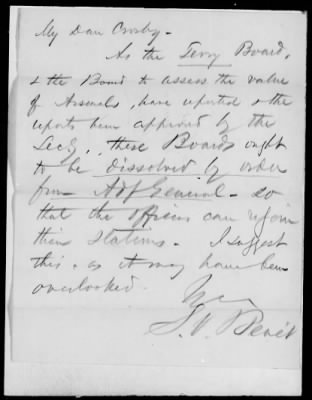 My Dear Crosby -
As the Terry Board,
& the Board to assess the value
of Arsenals, have reported & the
reports been approved by the
Secy, these Boards ought
to be dissolved by order
from Adj General - so
that the officers can rejoin
their Stations - I suggest
this, as it may have been
overlooked.
Yrs
S. V. Benét